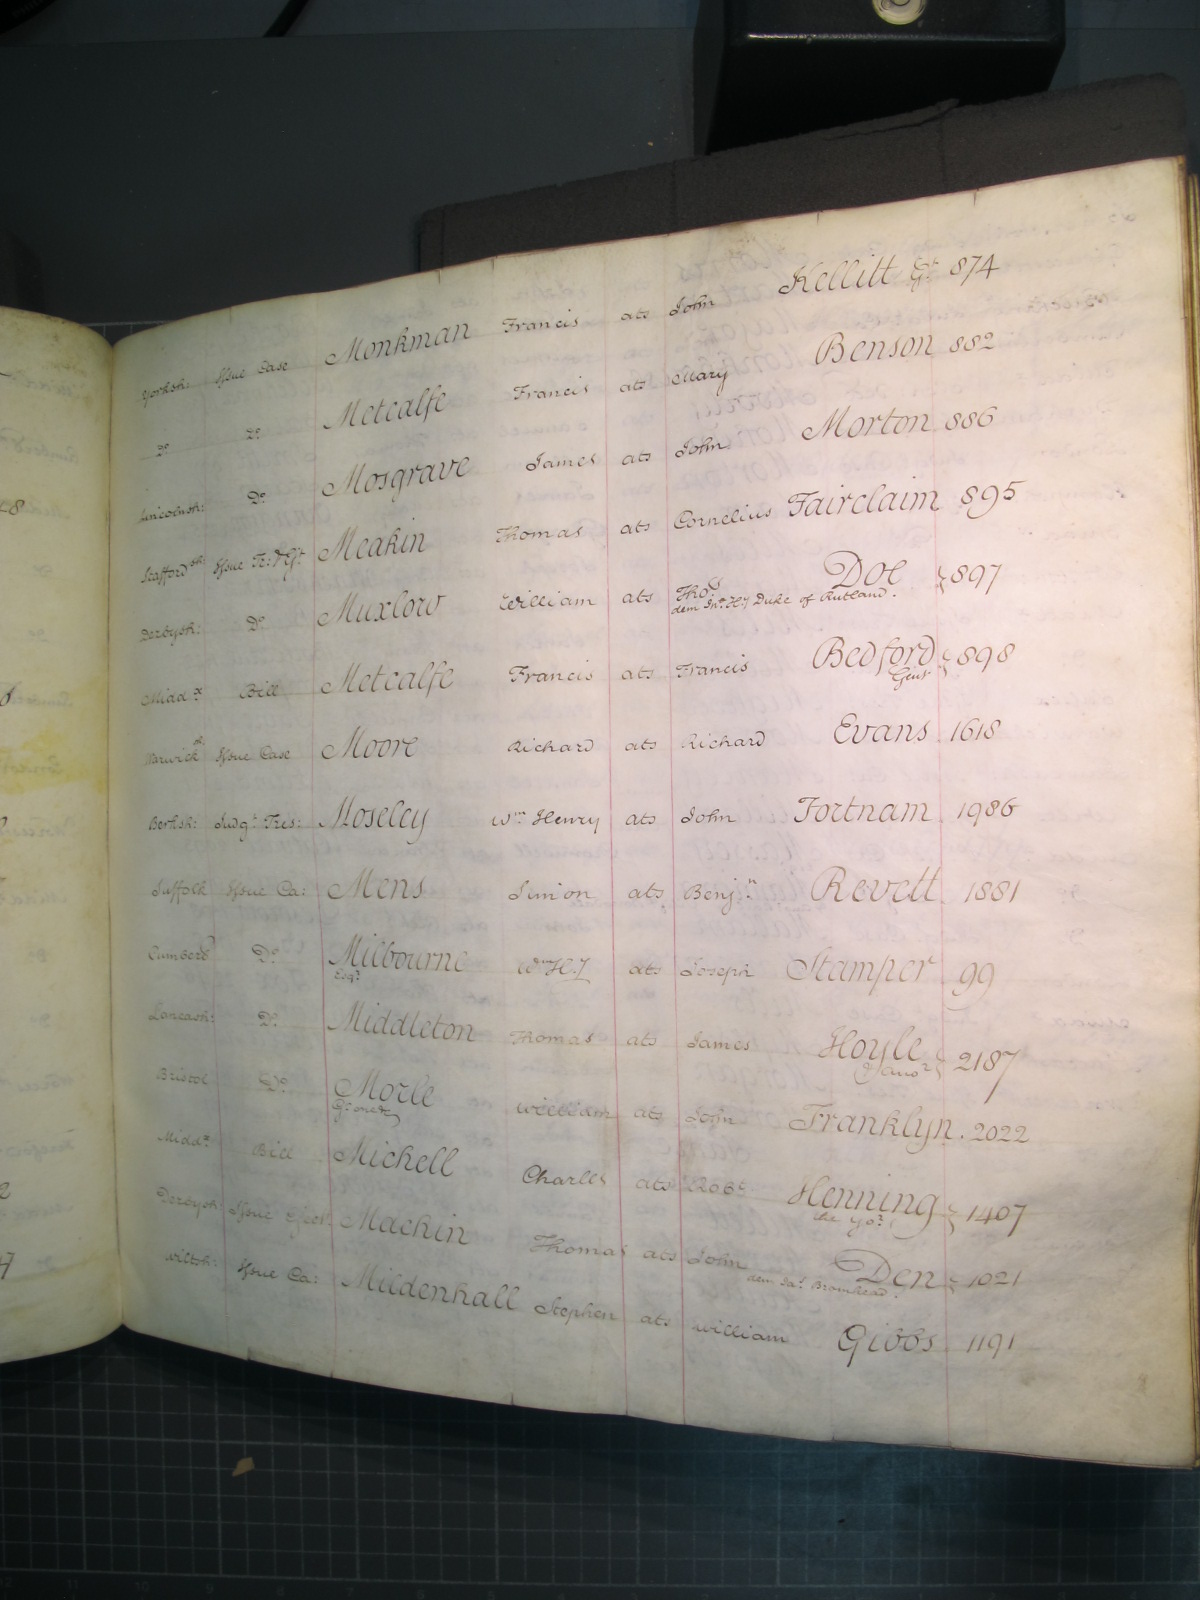 Yorksh: Issue Case Monkman Francis ats John Kellitt Gt 874
Do Do Metcalfe Francis ats Mary Benson 882
Lincolnsh: Do Mosgrave James ats John Morton 886
Staffordsh: Issue Tr: & Ejt Meakin Thomas ats Cornelius Fairclaim 895
Derbysh: Do Muxlow William ats Thos Doe 897
dem Jno Hy Duke of Rutland.
Middx Bill Metcalfe Francis ats Francis Bedford 898
Gent
Warwicksh: Issue Case Moore Richard ats Richard Evans 1618
Berksh: Judgt Tres: Moseley Wm Henry ats John Fortnam 1986
Suffolk Issue Ca: Mens Simon ats Benjn Revett 1881
Cumberd Do Milbourne Wm Hy ats Joseph Stamper 99
Esqr
Lancash: Do Middleton Thomas ats James Hoyle 2187
& anor
Bristol Do Morle William ats John Franklyn. 2022
Middx Bill Michell Charles ats Robt Henning 1407
the yor
Derbysh: Issue Eject Machin Thomas ats John Den 1021
dem Jas Bromhead.
Wiltsh: Issue Ca: Mildenhall Stephen ats William Gibbs 1191